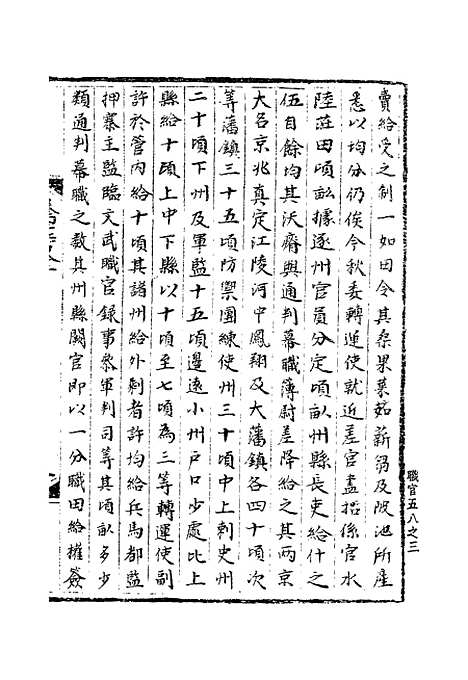 賣給受之制一如田令其桑果菜茹薪芻及陂池所產
悉以均分仍俟今秋委轉運使就近差官盡括係官水
陸莊田頃畝據逐州官員分定頃畝州縣長吏給什之
伍自餘均其沃瘠與通判幕職簿尉差降給之其兩京
大名京兆真定江陵河中鳳翔及大藩鎮各四十頃次
等藩鎮三十五頃防禦團練使州三十頃中上刺史州
二十頃下州及軍監十五頃邊遠小州戶口少處比上
縣給十頃上中下縣以十頃至七頃為三等轉運使副
許於管內給十頃其諸州給外剩者許均給兵馬都監
押寨主監臨文武職官錄事參軍判司等其頃畝多少
類通判幕職之數其州縣闕官即以一分職田給權簽
職官五八之三